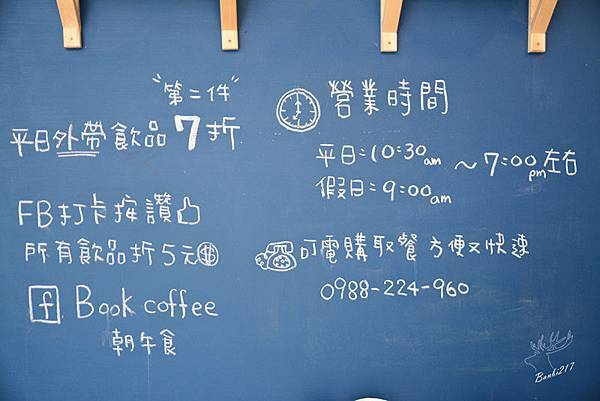 "第二件"
平日外帶飲品7折
FB打卡按讚
所有飲品折5元
f Book coffee
朝午食
營業時間
平日:10:30am
假日:9:00am
~7:00pm左右
可電購取餐 方便又快速
0988-224-960
Banki217